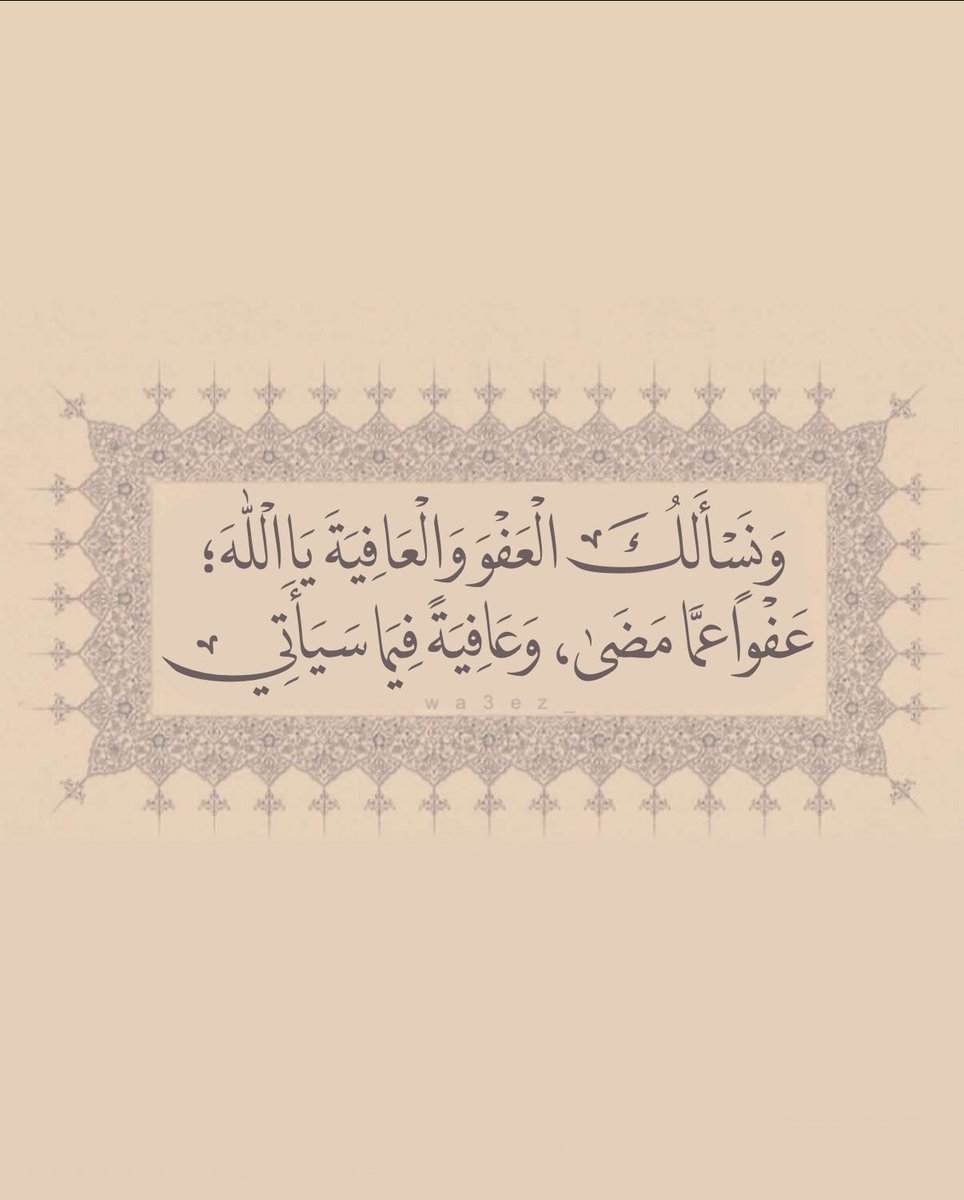 وَنَسْأَلُكَ الْعَفْوَ وَالْعَافِيَةَ يَا اللّٰهَ؛
عَفْوًا عَمَّا مَضَىٰ، وَعَافِيَةً فِيمَا سَيَأَتِي
wa3ez_